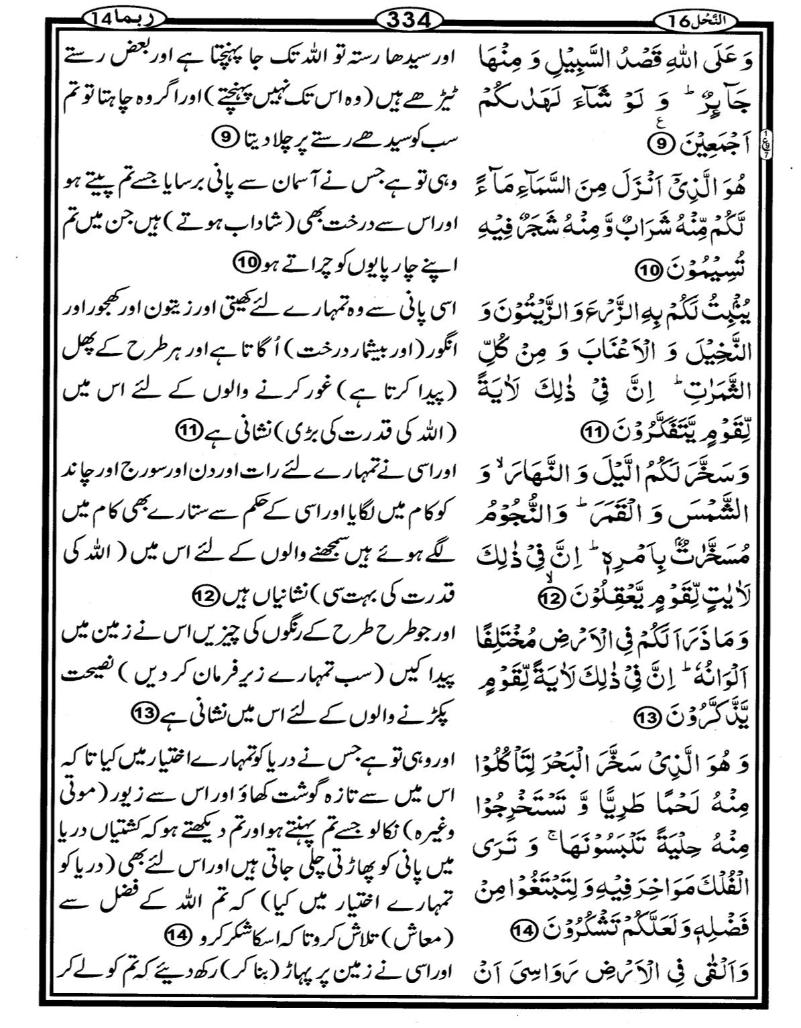 النَّحْل 16
334
ربما 14
وَ عَلَى اللّٰهِ قَصْدُ السَّبِيْلِ وَ مِنْهَا
جَآىِٕرٌ ؕ وَ لَوْ شَآءَ لَهَدٰىكُمْ
اَجْمَعِيْنَ 9
هُوَ الَّذِيْۤ اَنْزَلَ مِنَ السَّمَآءِ مَآءً
لَّكُمْ مِّنْهُ شَرَابٌ وَّ مِنْهُ شَجَرٌ فِيْهِ
تُسِيْمُوْنَ 10
يُنْۢبِتُ لَكُمْ بِهِ الزَّرْعَ وَ الزَّيْتُوْنَ وَ
النَّخِيْلَ وَ الْاَعْنَابَ وَ مِنْ كُلِّ
الثَّمَرٰتِ ؕ اِنَّ فِيْ ذٰلِكَ لَاٰيَةً
لِّقَوْمٍ يَّتَفَكَّرُوْنَ 11
وَ سَخَّرَ لَكُمُ الَّيْلَ وَ النَّهَارَ ۙ وَ
الشَّمْسَ وَ الْقَمَرَ ؕ وَ النُّجُوْمُ
مُسَخَّرٰتٌۢ بِاَمْرِهٖ ؕ اِنَّ فِيْ ذٰلِكَ
لَاٰيٰتٍ لِّقَوْمٍ يَّعْقِلُوْنَ ۙ 12
وَ مَا ذَرَاَ لَكُمْ فِي الْاَرْضِ مُخْتَلِفًا
اَلْوَانُهٗ ؕ اِنَّ فِيْ ذٰلِكَ لَاٰيَةً لِّقَوْمٍ
يَّذَّكَّرُوْنَ 13
وَ هُوَ الَّذِيْ سَخَّرَ الْبَحْرَ لِتَاْكُلُوْا
مِنْهُ لَحْمًا طَرِيًّا وَّ تَسْتَخْرِجُوْا
مِنْهُ حِلْيَةً تَلْبَسُوْنَهَا ۚ وَ تَرَى
الْفُلْكَ مَوَاخِرَ فِيْهِ وَ لِتَبْتَغُوْا مِنْ
فَضْلِهٖ وَ لَعَلَّكُمْ تَشْكُرُوْنَ 14
وَ اَلْقٰى فِي الْاَرْضِ رَوَاسِيَ اَنْ
اور سیدھا رستہ تو اللہ تک جا پہنچتا ہے اور بعض رستے
ٹیڑھے ہیں (وہ اس تک نہیں پہنچتے) اور اگر وہ چاہتا تو تم
سب کو سیدھے رستے پر چلا دیتا 9
وہی تو ہے جس نے آسمان سے پانی برسایا جسے تم پیتے ہو
اور اس سے درخت بھی (شاداب ہوتے) ہیں جن میں تم
اپنے چارپایوں کو چراتے ہو 10
اسی پانی سے وہ تمہارے لئے کھیتی اور زیتون اور کھجور اور
انگور (اور بیشمار درخت) اُگاتا ہے اور ہر طرح کے پھل
(پیدا کرتا ہے) غور کرنے والوں کے لئے اس میں
(اللہ کی قدرت کی بڑی) نشانی ہے 11
اور اسی نے تمہارے لئے رات اور دن اور سورج اور چاند
کو کام میں لگایا اور اسی کے حکم سے ستارے بھی کام میں
لگے ہوئے ہیں سمجھنے والوں کے لئے اس میں (اللہ کی
قدرت کی بہت سی) نشانیاں ہیں 12
اور جو طرح طرح کے رنگوں کی چیزیں اس نے زمین میں
پیدا کیں (سب تمہارے زیر فرمان کر دیں) نصیحت
پکڑنے والوں کے لئے اس میں نشانی ہے 13
اور وہی تو ہے جس نے دریا کو تمہارے اختیار میں کیا تا کہ
اس میں سے تازہ گوشت کھاؤ اور اس سے زیور (موتی
وغیرہ) نکالو جسے تم پہنتے ہو اور تم دیکھتے ہو کہ کشتیاں دریا
میں پانی کو پھاڑتی چلی جاتی ہیں اور اس لئے بھی (دریا کو
تمہارے اختیار میں کیا) کہ تم اللہ کے فضل سے
(معاش) تلاش کرو تا کہ اسکا شکر کرو 14
اور اسی نے زمین پر پہاڑ (بنا کر) رکھ دیئے کہ تم کو لے کر